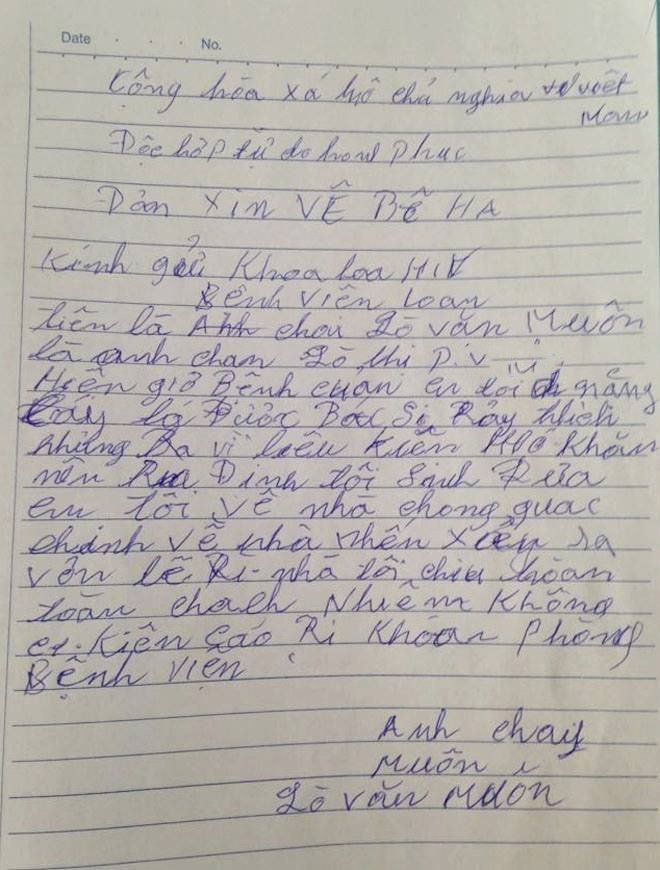 Date . . . No.
Cộng hòa xá hộ chả nghĩa việt
Man
Độc hâp tự do hanh Phuc
Dản XIN VỄ BỄ HA
Kính gửi Khoa loa HIV
Bênh viên Loan
tiên là Anh chai Lò văn Muôn
là anh chan Lò thi P.V
Hiên giờ Bênh cuan em tôi nặng
lấy là Được Bac Sĩ Rảy thich
nhưng Ra vì liêu Kiên Hoo Khăn
nên Rua Đinh tôi Sinh Rưa
em tôi về nhà chong quac
chinh về nhà nhên xảy ra
vón lê Ri nhà tôi chiu hoan
toàn chach Nhiêm Không
co Kiên Cáo Ri Khoan Phòng
Bệnh viên
Anh chay
Muôn
Lò văn Muôn